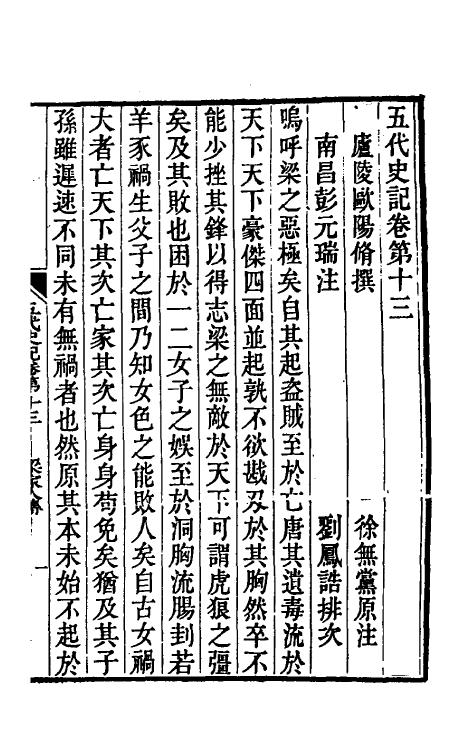 五代史記卷第十三
廬陵歐陽脩撰　徐無黨原注
南昌彭元瑞注　劉鳳誥排次
嗚呼梁之惡極矣自其起盜賊至於亡唐其遺毒流於
天下天下豪傑四面並起孰不欲戡刃於其胸然卒不
能少挫其鋒以得志梁之無敵於天下可謂虎狼之彊
矣及其敗也困於一二女子之娛至於洞胸流腸刲若
羊豕禍生父子之間乃知女色之能敗人矣自古女禍
大者亡天下其次亡家其次亡身身苟免矣猶及其子
孫雖遲速不同未有無禍者也然原其本末始不起於
五代史記卷第十三　梁家人傳　一